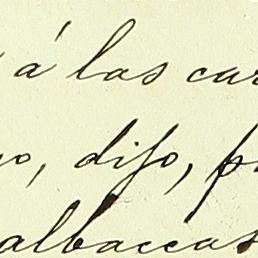 á las cur
o, dijo, p
albaceas